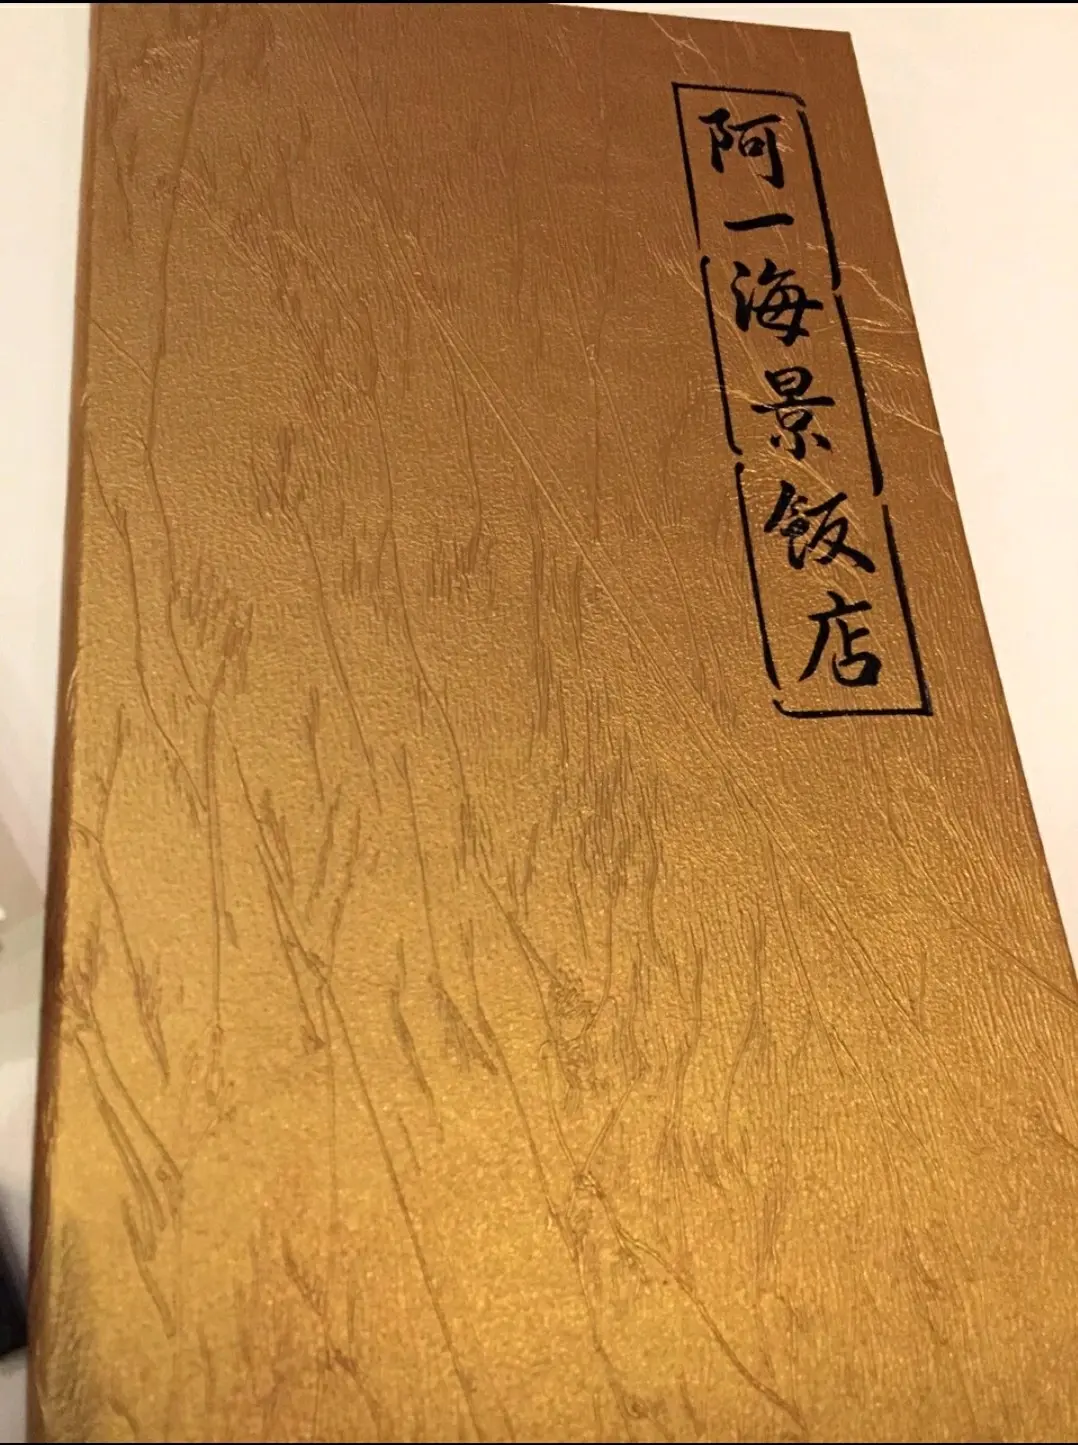 阿一海景饭店